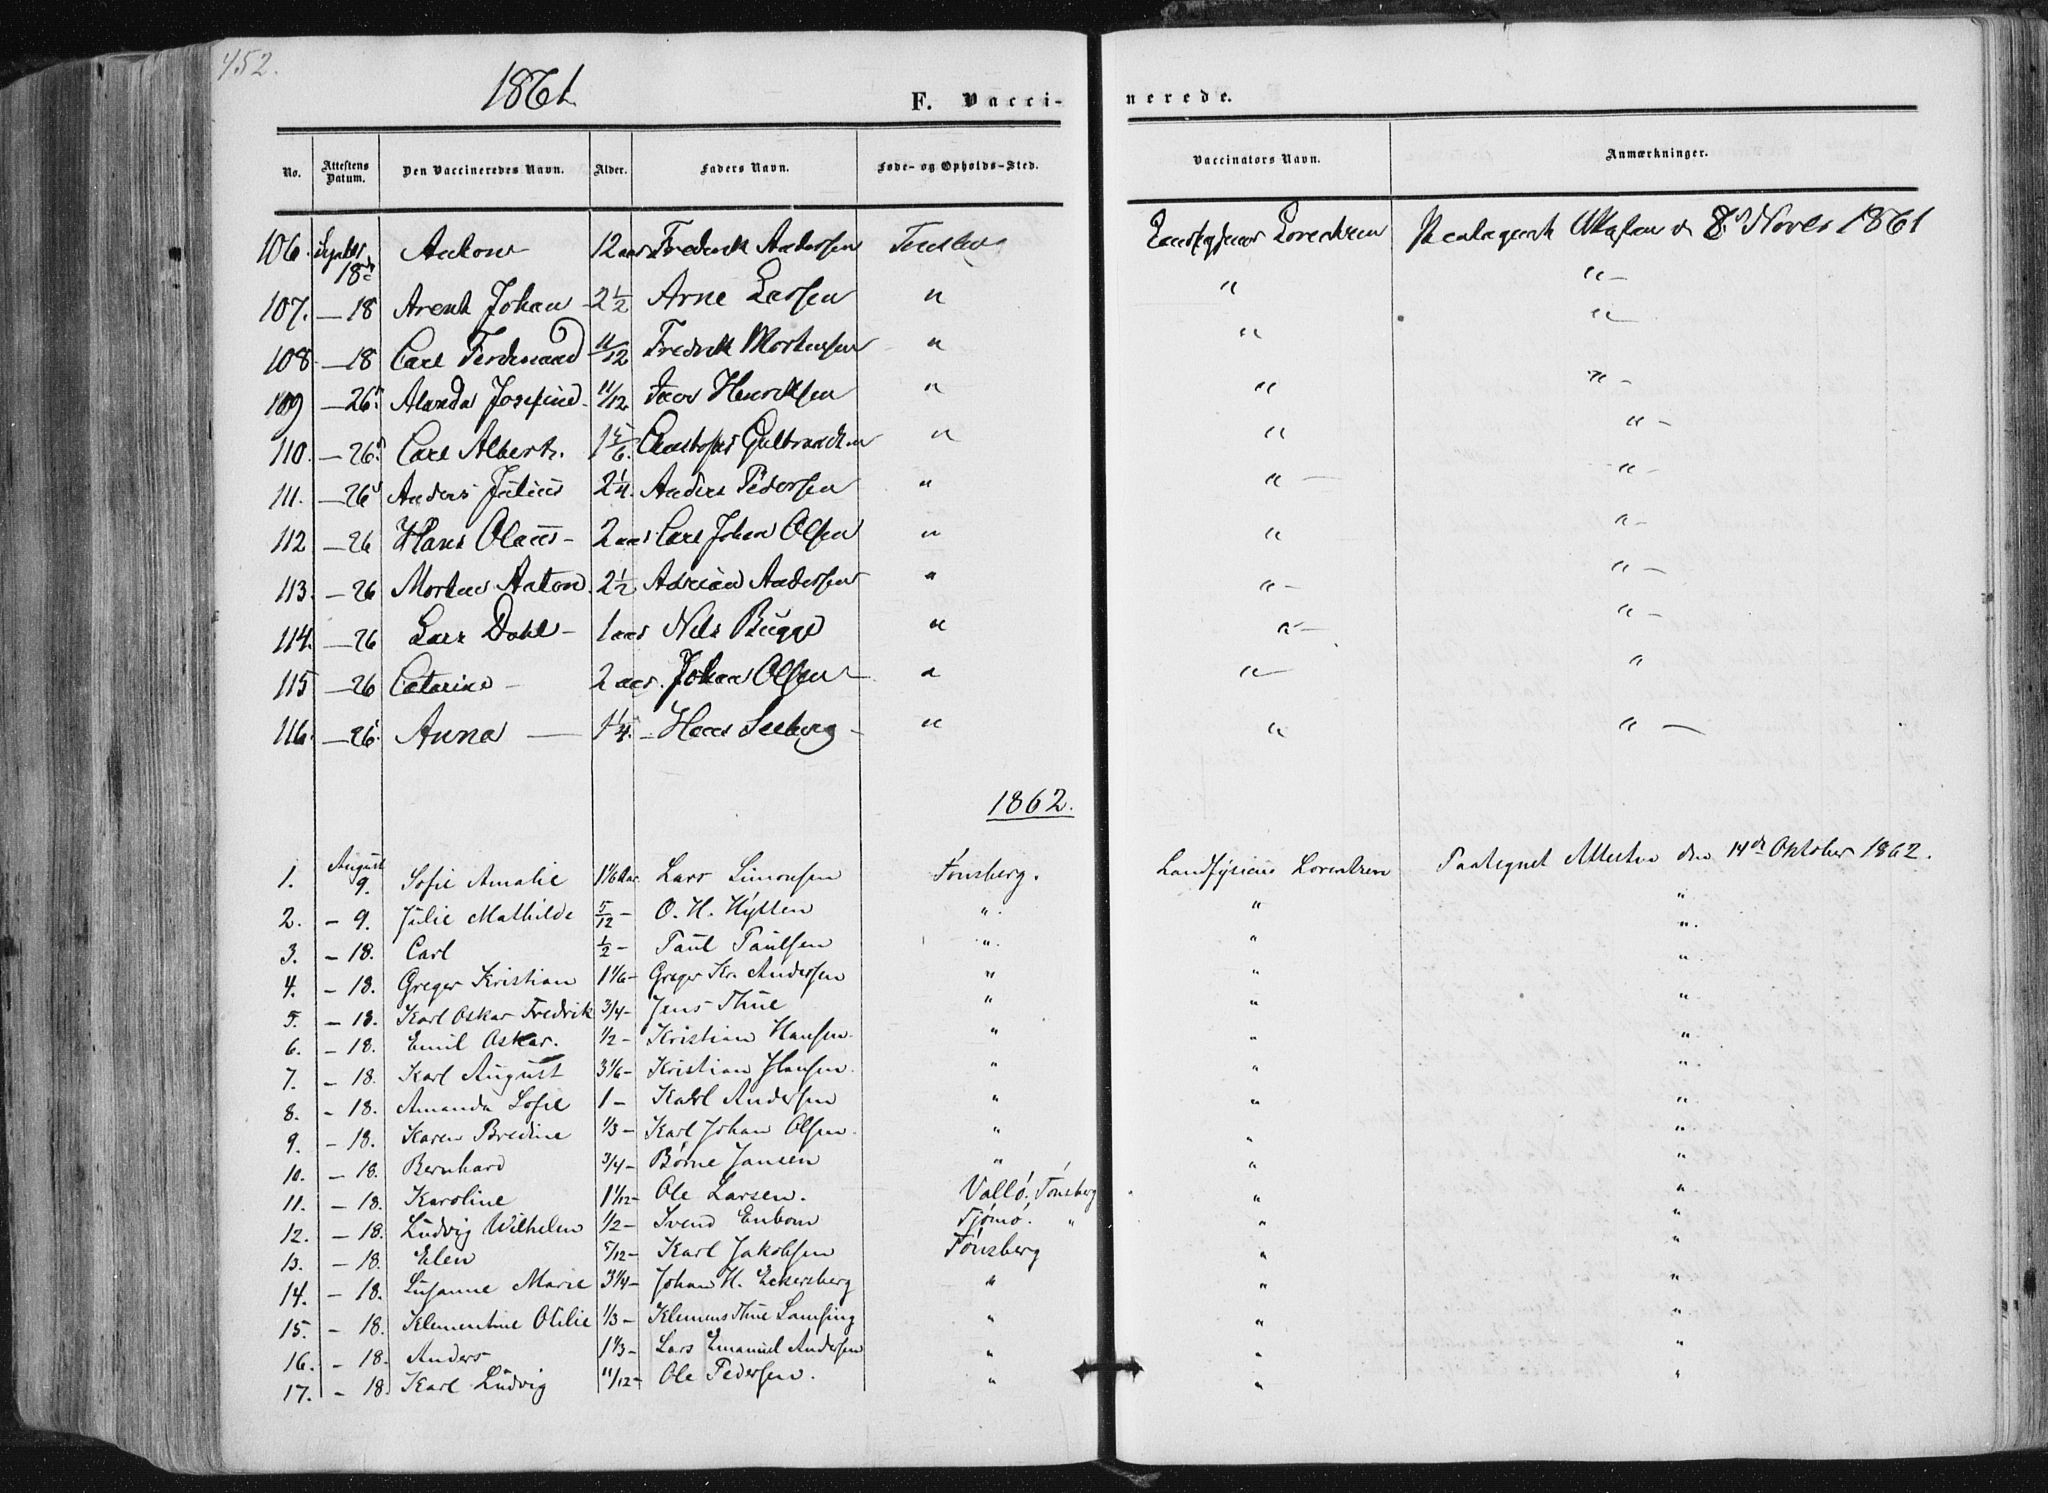 452.
1861
F. Vacci-
nerede.
No. Attestens Datum. Den Vaccineredes Navn. Alder. Faders Navn. Føde- og Opholds-Sted. Vaccinators Navn. Anmærkninger.
106. Septbr 18de Anton 12 aar Fredrik Andersen Tønsberg Landfysicus Lorentzen Paategnet Attesten d 8de Novbr 1861
107. — 18 Arent Johan 2 1/2 Arne Larsen " " "
108 — 18 Carl Ferdinand 11/12 Fredrik Mortensen " " "
109 — 26 Alanda Josefine 11/12 Henriksen " " "
110. — 26 Carl Albert. 1 5/6. Christofer Gulbrandsen " " "
111. — 26 Anders Julius 2 1/4. Anders Pedersen " " "
112 — 26 Hans Olaus — 2 aar Carl Johan Olsen " " "
113. — 26 Morten Anton 2 1/2 Adrian Andersen " " "
114. — 26 Lars Dahl — 1 aar Nils Bugge " " "
115 — 26 Catarine — 2 aar. Johan Olsen " " "
116. — 26. Anna — 1 1/4. Hans Seeberg " " "
1862.
1. August 9. Sofie Amalie 1 1/6 Aar Lars Simonsen Tønsberg. Landfysicus Lorentzen Paategnet Attesten den 14de Oktober 1862.
2. - 9. Julie Mathilde 5/12 - O. H. Hytten " " "
3. - 18. Carl 1/2 - Paul Paulsen " " "
4. - 18. Greger Kristian 1 1/6 - Greger Kr. Andersen " " "
5. - 18. Karl Oskar Fredrik 3/4 - Jens Thue " " "
6. - 18. Emil Oskar. 1/2 - Kristian Hansen. " " "
7. - 18. Karl August 3 1/6 - Kristian Hansen. " " "
8. - 18. Amanda Sofie 1 - Karl Andersen " " "
9. - 18. Karen Bredine 1/3 - Karl Johan Olsen. " " "
10. - 18. Bernhard 3/4 - Børne Jansen " " "
11. - 18. Karoline 1 1/12 - Ole Larsen. Vallø. Tønsberg " "
12. - 18. Ludvig Wilhelm 1/2 - Svend Enbom Tjømø. " " "
13. - 18. Elen 5/12 - Karl Jakobsen Tønsberg " "
14. - 18. Susanne Marie 3 1/4 - Johan H. Eckersberg " " "
15. - 18. Klementine Otilie 1/3 - Klemens Thue Lamsing " " "
16. - 18. Anders 1 1/3 - Lars Emanuel Andersen " " "
17. - 18. Karl Ludvig 11/12 - Ole Pedersen. " " "